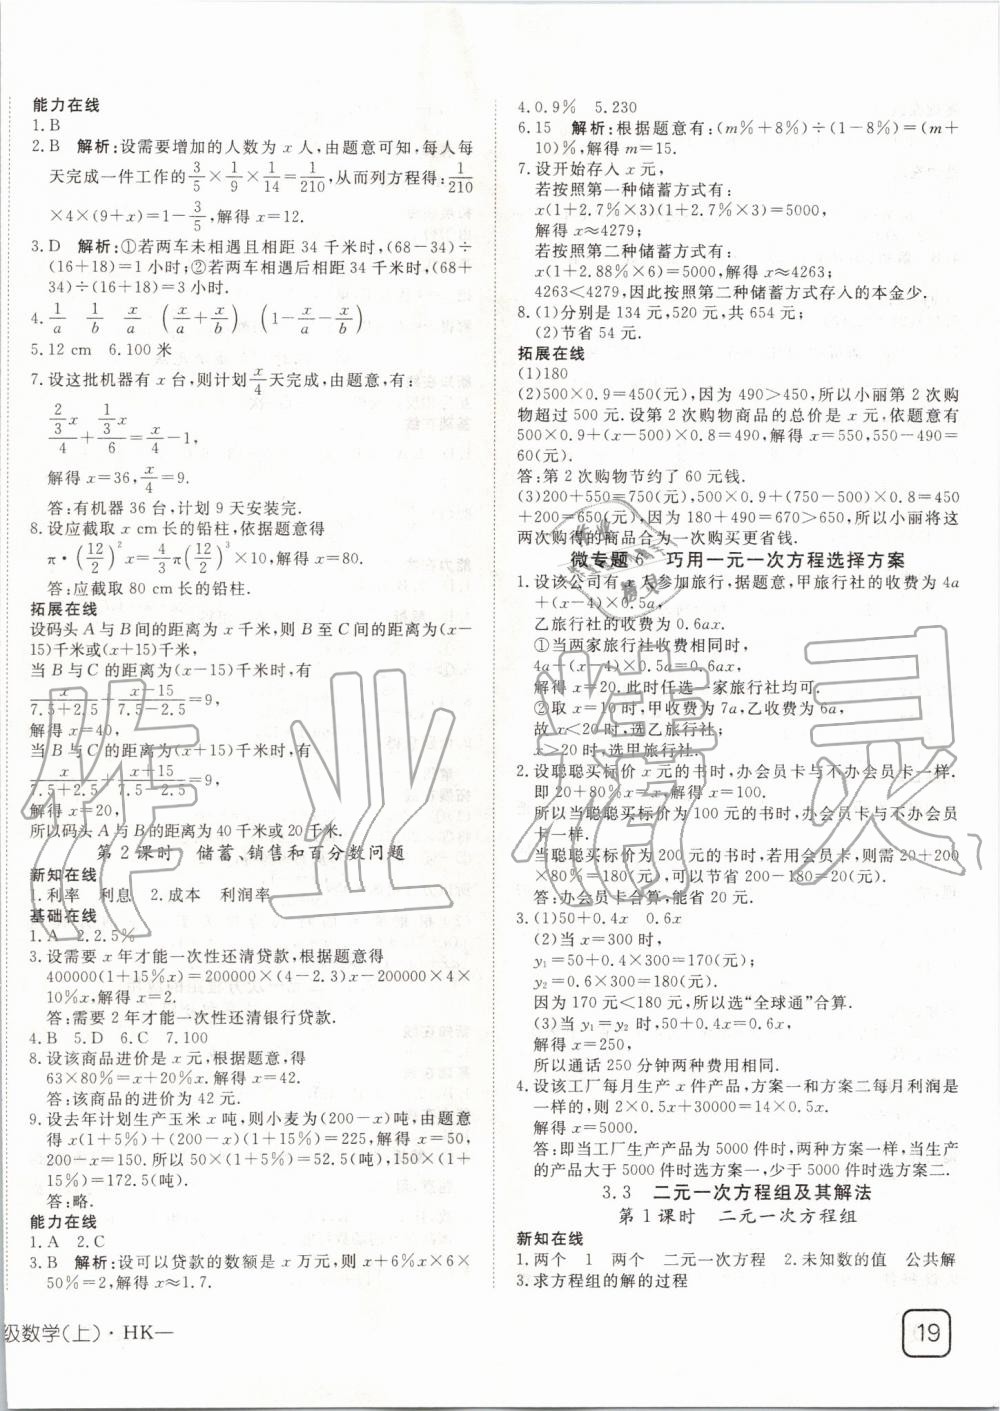 能力在线
1.B
2.B 解析:设需要增加的人数为 x 人,由题意可知,每人每
天完成一件工作的 3/5×1/9×1/14=1/210,从而列方程得:1/210
×4×(9+x)=1-3/5,解得 x=12.
3.D 解析:①若两车未相遇且相距 34 千米时,(68-34)÷
(16+18)=1 小时;②若两车相遇后相距 34 千米时,(68+
34)÷(16+18)=3 小时.
4. 1/a 1/b x/a (x/a+x/b) (1-x/a-x/b)
5.12 cm 6.100 米
7.设这批机器有 x 台,则计划 x/4 天完成,由题意,有:
(2/3 x)/4+(1/3 x)/6=x/4-1,
解得 x=36,x/4=9.
答:有机器 36 台,计划 9 天安装完.
8.设应截取 x cm 长的铅柱,依据题意得
π·(12/2)²x=4/3π(12/2)³×10,解得 x=80.
答:应截取 80 cm 长的铅柱.
拓展在线
设码头 A 与 B 间的距离为 x 千米,则 B 至 C 的距离为(x-
15)千米或(x+15)千米,
当 B 与 C 的距离为(x-15)千米时,有
x/(7.5+2.5)+(x-15)/(7.5-2.5)=9,
解得 x=40,
当 B 与 C 的距离为(x+15)千米时,有
x/(7.5+2.5)+(x+15)/(7.5-2.5)=9,
解得 x=20,
所以码头 A 与 B 的距离为 40 千米或 20 千米.
第 2 课时 储蓄、销售和百分数问题
新知在线
1.利率 利息 2.成本 利润率
基础在线
1.A 2.2.5%
3.设需要 x 年才能一次性还清贷款,根据题意得
400000(1+15%x)=200000×(4-2.3)x-200000×4×
10%x,解得 x=2.
答:需要 2 年才能一次性还清银行贷款.
4.B 5.D 6.C 7.100
8.设该商品进价是 x 元,根据题意,得
63×80%=x+20%x,解得 x=42.
答:该商品的进价为 42 元.
9.设去年计划生产玉米 x 吨,则小麦为(200-x)吨,由题意
得 x(1+5%)+(200-x)(1+15%)=225,解得 x=50,
200-x=150.所以 50×(1+5%)=52.5(吨),150×(1+
15%)=172.5(吨).
答:略.
能力在线
1.A 2.C
3.B 解析:设可以贷款的数额是 x 万元,则 x+6%x×6×
50%=2,解得 x≈1.7.
4.0.9% 5.230
6.15 解析:根据题意有:(m%+8%)÷(1-8%)=(m+
10)%,解得 m=15.
7.设开始存入 x 元,
若按照第一种储蓄方式有:
x(1+2.7%×3)(1+2.7%×3)=5000,
解得 x≈4279;
若按照第二种储蓄方式有:
x(1+2.88%×6)=5000,解得 x≈4263;
4263<4279,因此按照第二种储蓄方式存入的本金少.
8.(1)分别是 134 元,520 元,共 654 元;
(2)节省 54 元.
拓展在线
(1)180
(2)500×0.9=450(元),因为 490>450,所以小丽第 2 次购
物超过 500 元.设第 2 次购物商品的总价是 x 元,依题意有
500×0.9+(x-500)×0.8=490,解得 x=550,550-490=
60(元).
答:第 2 次购物节约了 60 元钱.
(3)200+550=750(元),500×0.9+(750-500)×0.8=450
+200=650(元),因为 180+490>670>650,所以小丽将这
两次购得的商品合为一次购买更省钱.
微专题 6 巧用一元一次方程选择方案
1.设该公司有 x 人参加旅行,据题意,甲旅行社的收费为 4a
+(x-4)×0.5a,
乙旅行社的收费为 0.6ax.
①当两家旅行社收费相同时,
4a+(x-4)×0.5a=0.6ax,
解得 x=20.此时任选一家旅行社均可.
②取 x=10 时,甲收费为 7a,乙收费为 6a,
故 x<20 时,选乙旅行社;
x>20 时,选甲旅行社.
2.设聪聪买标价 x 元的书时,办会员卡与不办会员卡一样.
即 20+80%x=x,解得 x=100.
所以当聪聪买标价为 100 元的书时,办会员卡与不办会员
卡一样.
当聪聪买标价为 200 元的书时,若用会员卡,则需 20+200
×80%=180(元),可以节省 200-180=20(元).
答:办会员卡合算,能省 20 元.
3.(1)50+0.4x 0.6x
(2)当 x=300 时,
y₁=50+0.4×300=170(元),
y₂=0.6×300=180(元).
因为 170 元<180 元,所以选“全球通”合算.
(3)当 y₁=y₂ 时,50+0.4x=0.6x,
解得 x=250,
所以通话 250 分钟两种费用相同.
4.设该工厂每月生产 x 件产品,方案一和方案二每月利润是
一样的,则 2×0.5x+30000=14×0.5x.
解得 x=5000.
答:即当工厂生产产品为 5000 件时,两种方案一样,当生产
的产品大于 5000 件时选方案一,少于 5000 件时选方案二.
3.3 二元一次方程组及其解法
第 1 课时 二元一次方程组
新知在线
1.两个 1 两个 二元一次方程 2.未知数的值 公共解
3.求方程组的解的过程
级数学(上)·HK—
19
作业精灵